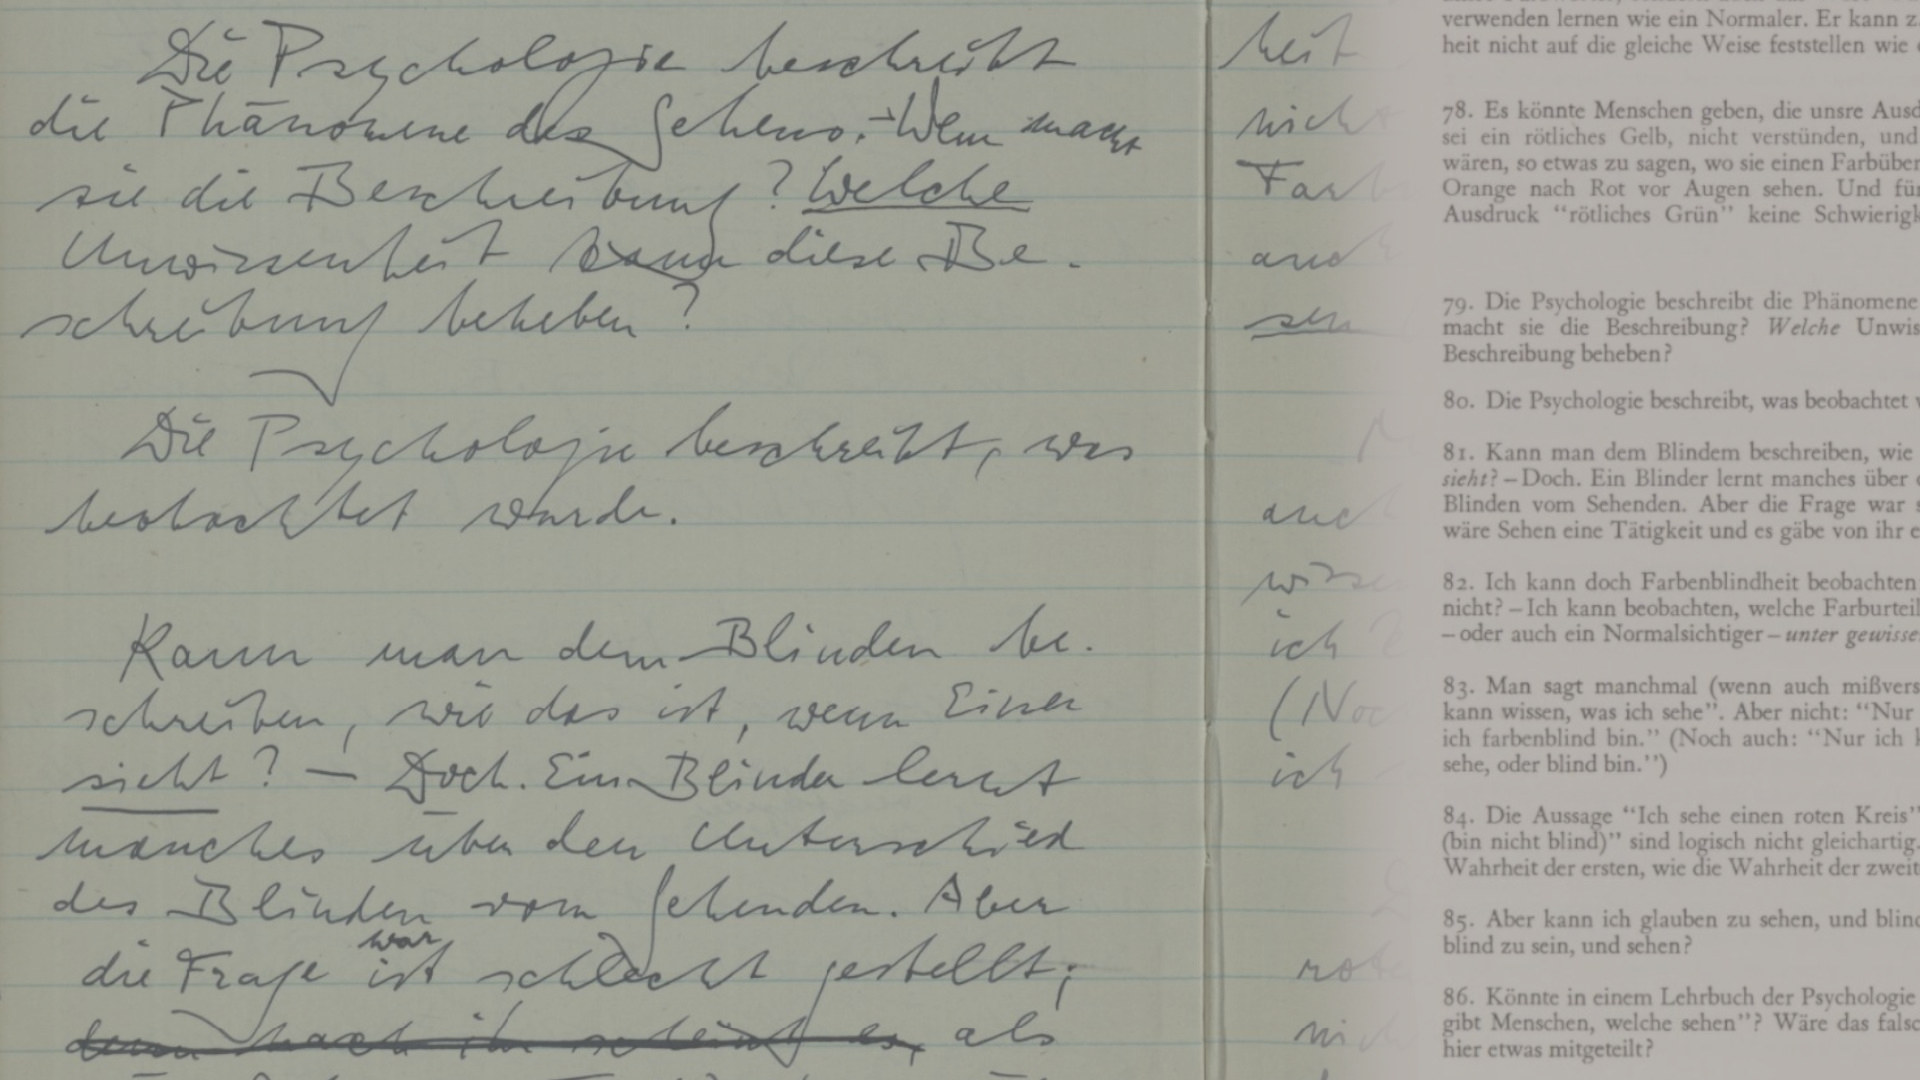 Die Psychologie beschreibt
die Phänomene des Sehens. – Wem macht
sie die Beschreibung? Welche
Unwissenheit kann diese Be-
schreibung beheben?
Die Psychologie beschreibt, was
beobachtet wurde.
Kann man dem Blinden be-
schreiben, wie das ist, wenn Einer
sieht? – Doch. Ein Blinder lernt
manches über den Unterschied
des Blinden vom Sehenden. Aber
war
die Frage ist schlecht gestellt;
denn nach ihr scheint es, als
heit
nich
Farb
auch
sen
auc
wisse
ich
(Noc
ich
rot
nic
verwenden lernen wie ein Normaler. Er kann z.
heit nicht auf die gleiche Weise feststellen wie
78. Es könnte Menschen geben, die unsre Ausd
sei ein rötliches Gelb, nicht verstünden, und
wären, so etwas zu sagen, wo sie einen Farbüber
Orange nach Rot vor Augen sehen. Und für
Ausdruck “rötliches Grün” keine Schwierigk
79. Die Psychologie beschreibt die Phänomene
macht sie die Beschreibung? Welche Unwis
Beschreibung beheben?
80. Die Psychologie beschreibt, was beobachtet
81. Kann man dem Blindem beschreiben, wie
sieht? – Doch. Ein Blinder lernt manches über
Blinden vom Sehenden. Aber die Frage war s
wäre Sehen eine Tätigkeit und es gäbe von ihr e
82. Ich kann doch Farbenblindheit beobachten
nicht? – Ich kann beobachten, welche Farburteil
– oder auch ein Normalsichtiger – unter gewisse
83. Man sagt manchmal (wenn auch mißvers
kann wissen, was ich sehe”. Aber nicht: “Nur
ich farbenblind bin.” (Noch auch: “Nur ich k
sehe, oder blind bin.”)
84. Die Aussage “Ich sehe einen roten Kreis”
(bin nicht blind)” sind logisch nicht gleichartig.
Wahrheit der ersten, wie die Wahrheit der zweit
85. Aber kann ich glauben zu sehen, und blind
blind zu sein, und sehen?
86. Könnte in einem Lehrbuch der Psychologie
gibt Menschen, welche sehen”? Wäre das falsc
hier etwas mitgeteilt?